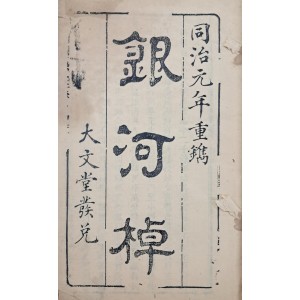 同治元年重鐫
銀河棹
大文堂發兌